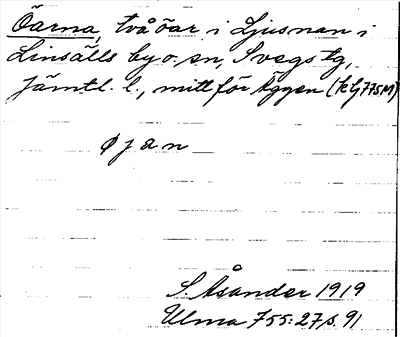 Öarna, två öar i Ljusnan i
Linsälls by o. sn, Svegs tg,
Jämtl. l., mitt för Äggen (k lj 775 M)
øjan
S. Åsander 1919
Ulma 755:27, s. 91